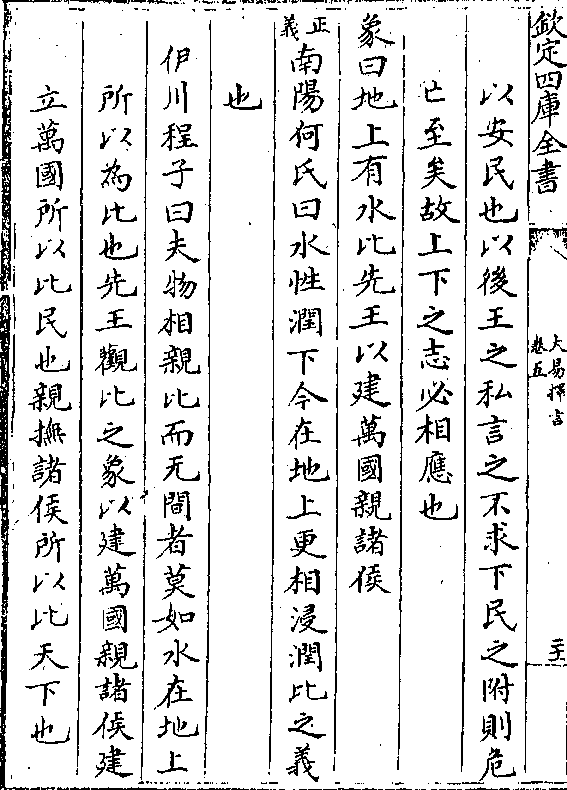 欽定四庫全書
大易擇言
卷五
以安民也以後王之私言之不求下民之附則危
亡至矣故上下之志必相應也
象曰地上有水比先王以建萬國親諸侯
正義
南陽何氏曰水性潤下今在地上更相浸潤比之義
也
伊川程子曰夫物相親比而无間者莫如水在地上
所以為比也先王觀比之象以建萬國親諸侯建
立萬國所以比民也親撫諸侯所以比天下也